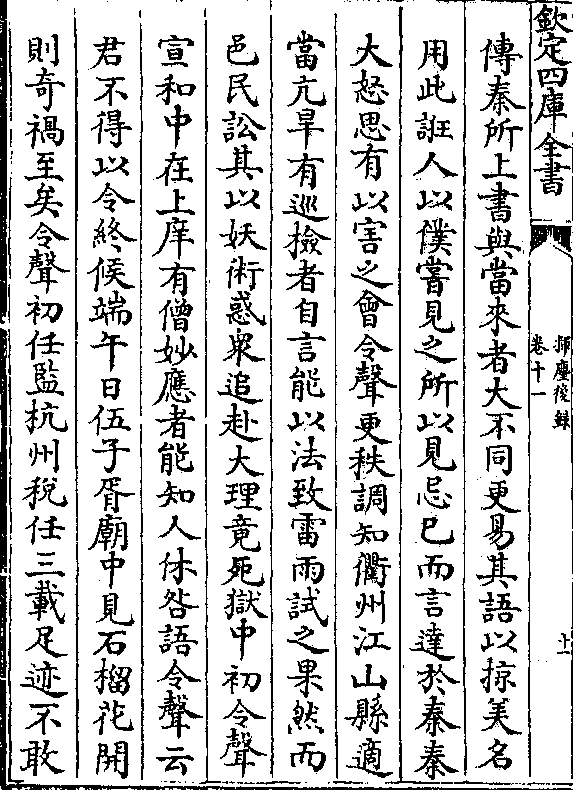 欽定四庫全書
揮麈後錄
卷十一
十一
傳秦所上書與當來者大不同更易其語以掠美名
用此誑人以僕嘗見之所以見忌已而言達於秦秦
大怒思有以害之會令聲更秩調知衢州江山縣適
當亢旱有巡檢者自言能以法致雷雨試之果然而
邑民訟其以妖術惑衆追赴大理竟死獄中初令聲
宣和中在上庠有僧妙應者能知人休咎語令聲云
君不得以令終候端午日伍子胥廟中見石榴花開
則奇禍至矣令聲初任監杭州稅任三載足迹不敢